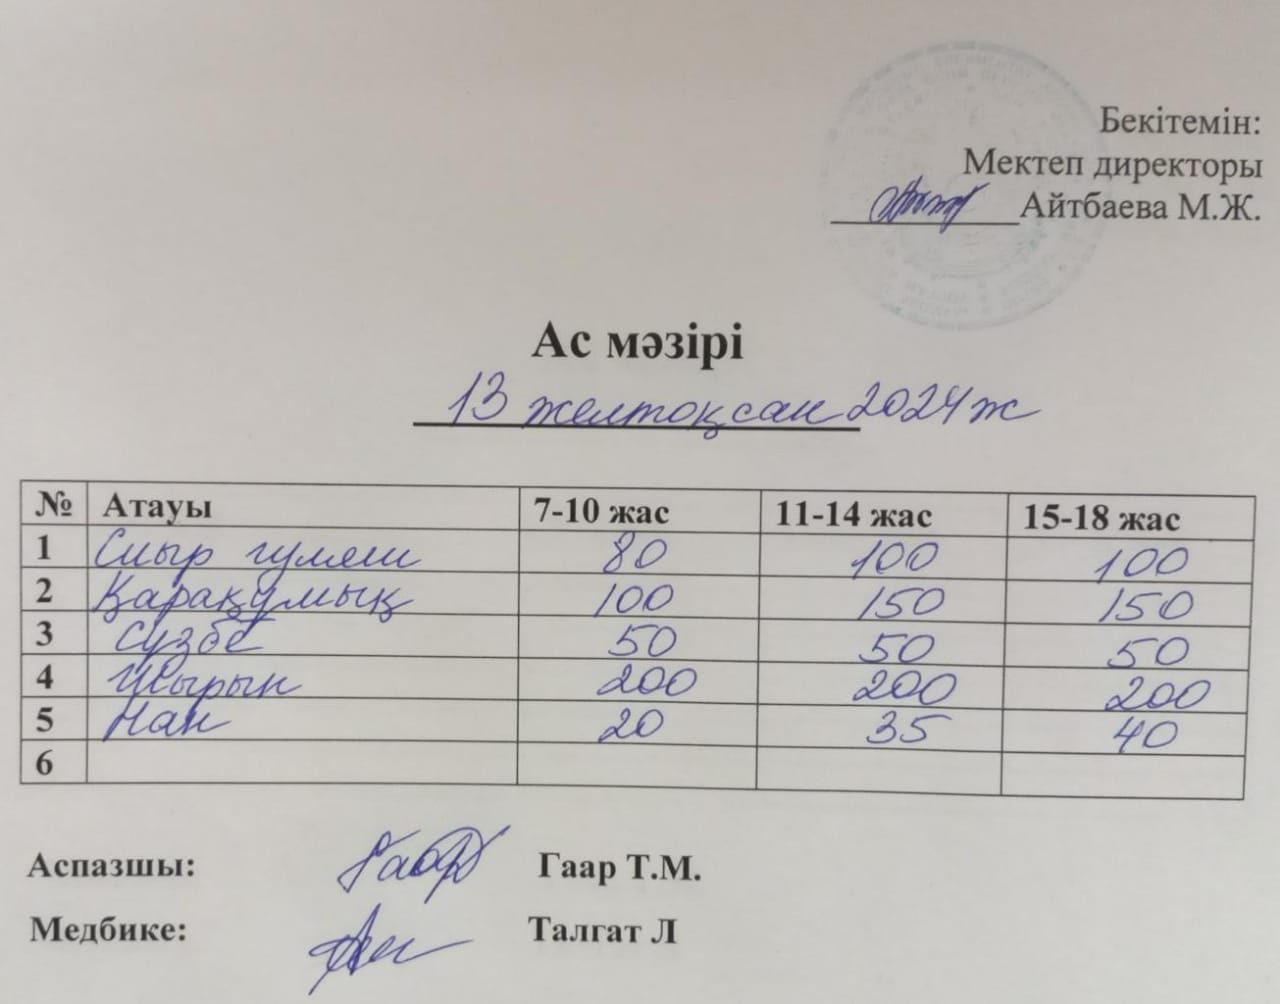 Бекітемін:
Мектеп директоры
Айтбаева М.Ж.
Ас мәзірі
13 желтоқсан 2024 ж
№ Атауы 7-10 жас 11-14 жас 15-18 жас
1 Сиыр гуляш 80 100 100
2 Қарақұмық 100 150 150
3 сүзбе 50 50 50
4 Шырын 200 200 200
5 Нан 20 35 40
6
Аспазшы: Гаар Т.М.
Медбике: Талгат Л